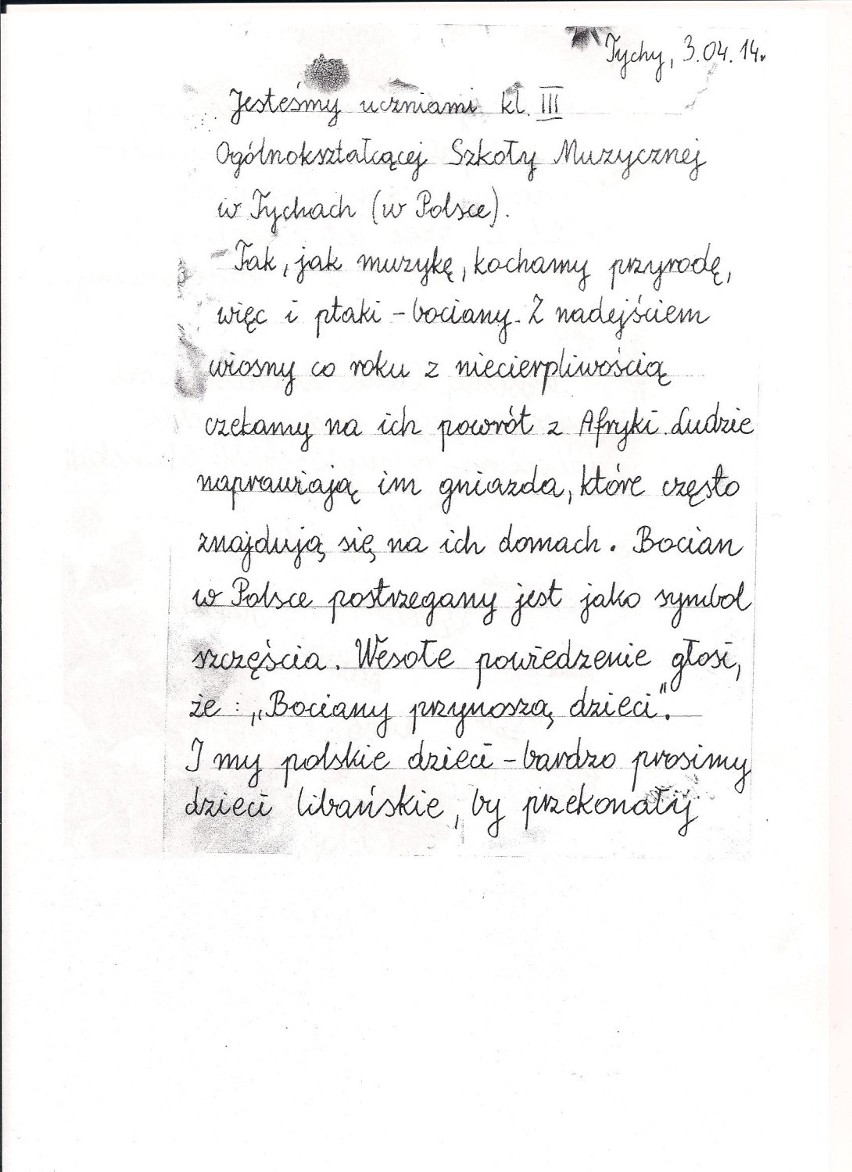 Tychy, 3.04.14.
Jesteśmy uczniami kl. III
Ogólnokształcącej Szkoły Muzycznej
w Tychach (w Polsce).
Tak, jak muzykę, kochamy przyrodę,
więc i ptaki - bociany. Z nadejściem
wiosny co roku z niecierpliwością
czekamy na ich powrót z Afryki. Ludzie
naprawiają im gniazda, które często
znajdują się na ich domach. Bocian
w Polsce postrzegany jest jako symbol
szczęścia. Wesołe powiedzenie głosi,
że: „Bociany przynoszą dzieci".
I my polskie dzieci - bardzo prosimy
dzieci libańskie, by przekonały